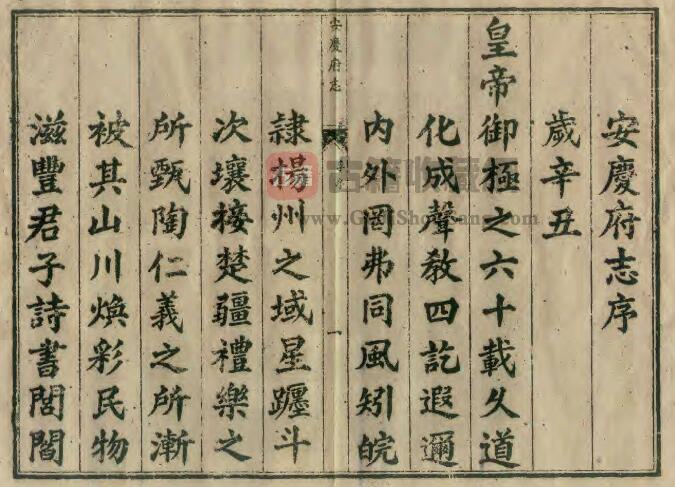 安慶府志序
歲辛丑
皇帝御極之六十載久道
化成聲敎四訖遐邇
內外罔弗同風矧皖
安慶府志
一
隷楊州之域星躔斗
次壤接楚疆禮樂之
所甄陶仁義之所漸
被其山川煥彩民物
滋豐君子詩書閭閻
古籍收藏